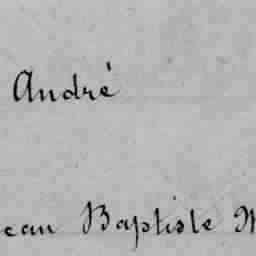 André
ean Baptiste